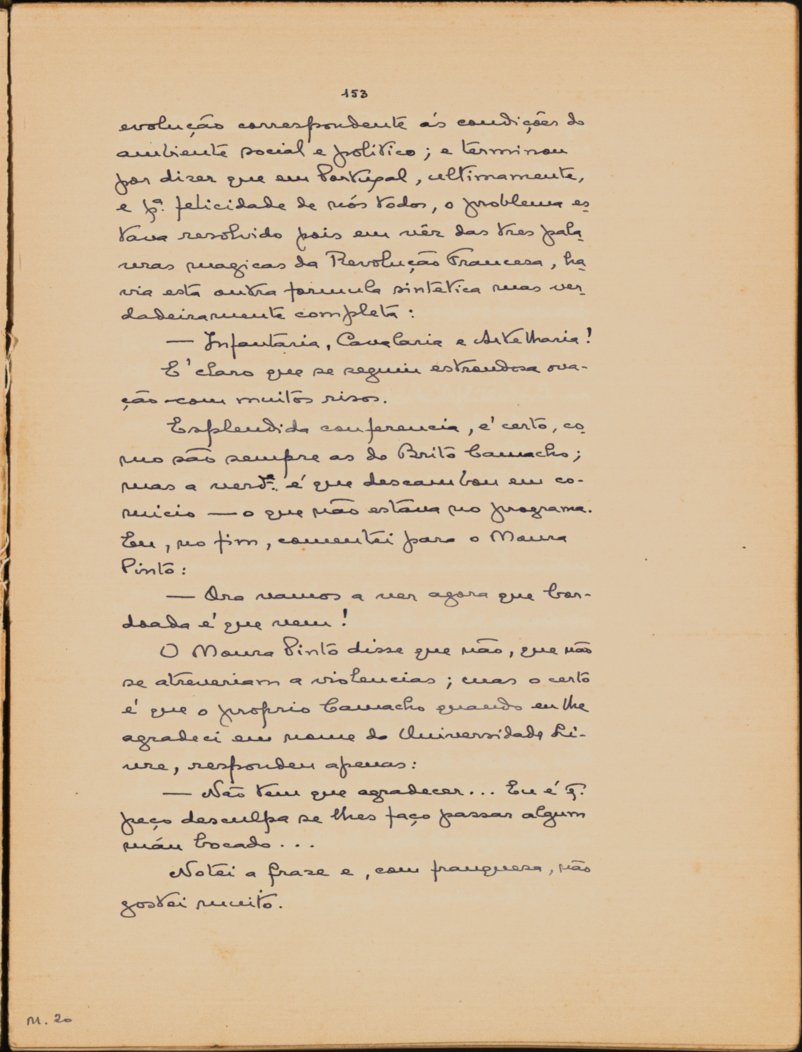 153
evolução correspondente ás condições do
ambiente social e politico; e terminou
por dizer que em Portugal, ultimamente,
e pª. felicidade de nós todos, o problema es-
tava resolvido pois em vêz das tres pala-
vras magicas da Revolução Francesa, ha-
via esta outra formula sintetica mas ver-
dadeiramente completa:
— Infantaria, Cavalaria e Artelharia!
E' claro que se seguiu estrondosa ova-
ção com muitos risos.
Esplendida conferencia, e' certo, co-
mo são sempre as do Brito Camacho;
mas a verdᵉ. é que descambou em co-
micio — o que não estáva no programa.
Eu, no fim, comentei para o Moura
Pinto:
— Ora vamos a ver agora que bor-
doada é que vem!
O Moura Pinto disse que não, que não
se atreveriam a violencias; mas o certo
é que o proprio Camacho quando eu lhe
agradeci em nome da Universidade Li-
vre, respondeu apenas:
— Não tem que agradecer... Eu é q.
peço desculpa se lhes faço passar algum
máu bocado...
Notei a frase e, com franquesa, não
gostei muito.
M. 20